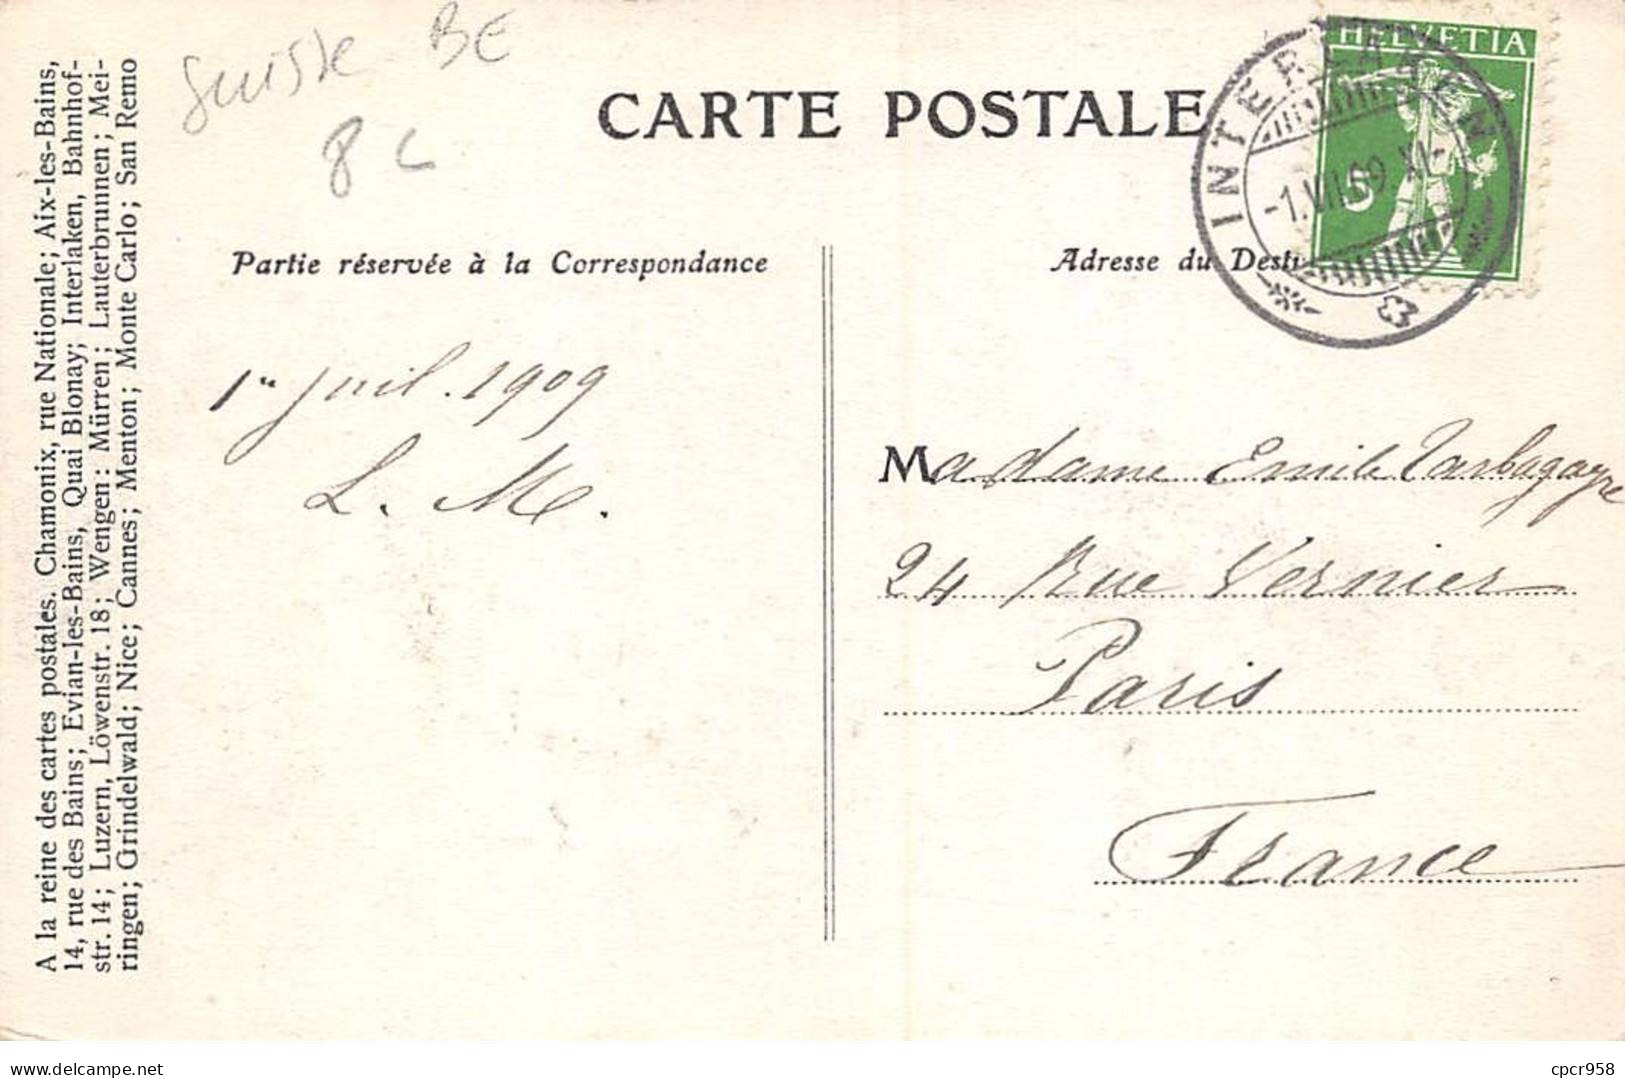 Suisse BE
8 c
CARTE POSTALE
HELVETIA
5
INTERLAKEN
-1.VII.09 XI-
Partie réservée à la Correspondance
Adresse du Desti
1er juil. 1909
L. M.
Madame Emile Tarbagayre
24 Rue Vernier
Paris
France
A la reine des cartes postales. Chamonix, rue Nationale; Aix-les-Bains,
14, rue des Bains; Evian-les-Bains, Quai Blonay; Interlaken, Bahnhof-
str. 14; Luzern, Löwenstr. 18; Wengen: Mürren; Lauterbrunnen; Mei-
ringen; Grindelwald; Nice; Cannes; Menton; Monte Carlo; San Remo
Delcampe.net
cpcr958